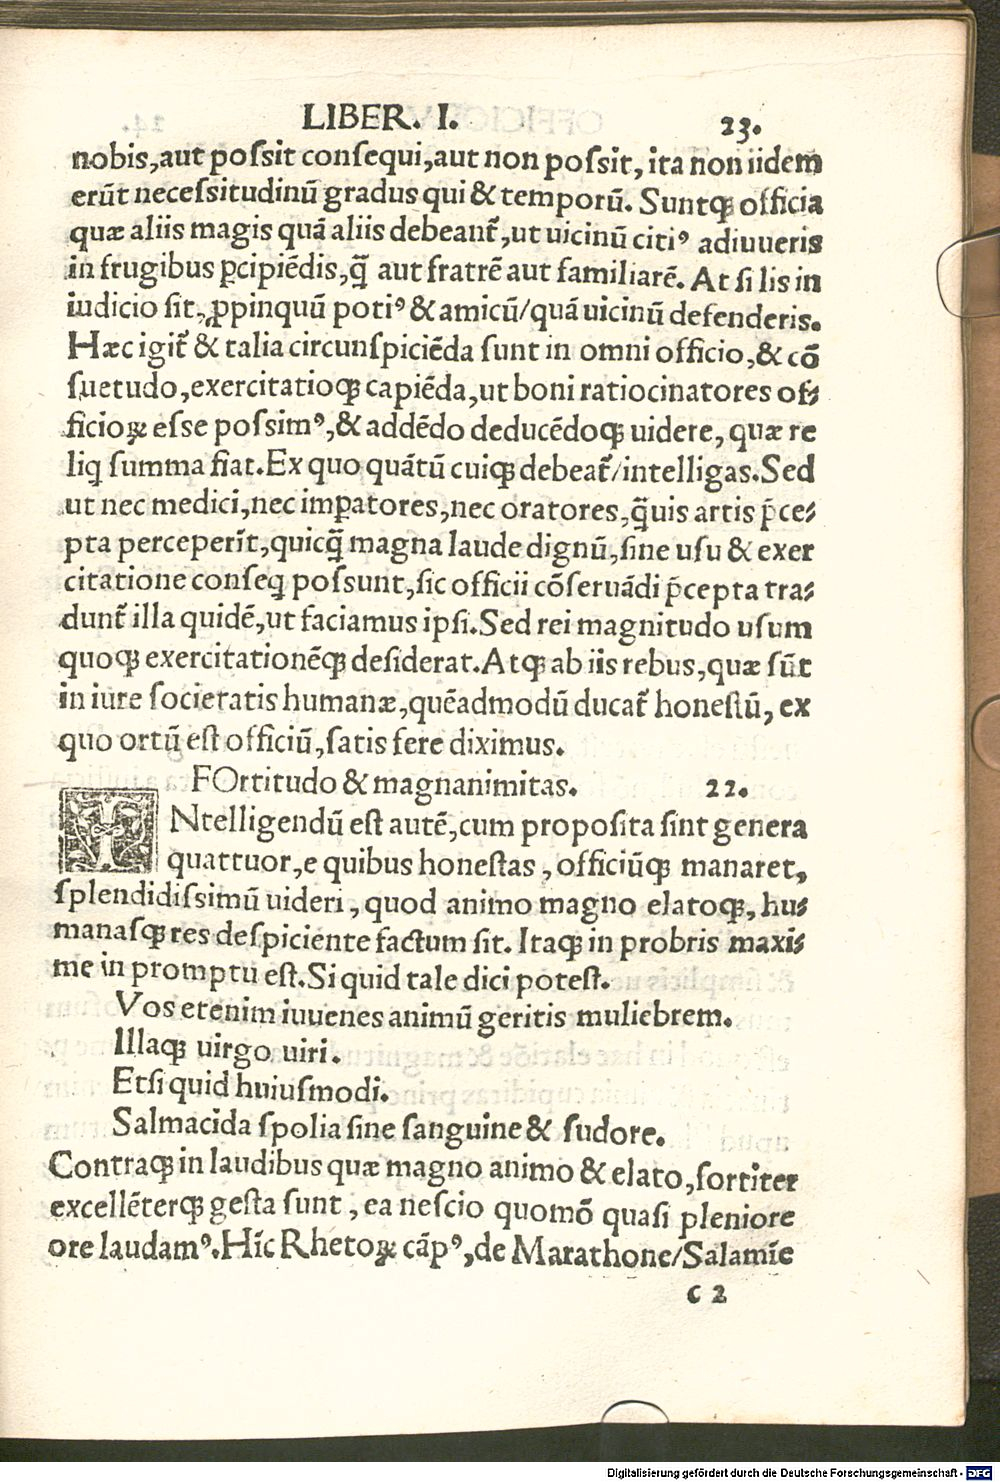 LIBER. I. 23.
nobis,aut poſsit conſequi,aut non poſsit, ita non iidem
erũt neceſsitudinũ gradus qui & temporũ. Suntqꝫ officia
quæ aliis magis quã aliis debeant᷑,ut uicinũ citiꝰ adiuueris
in frugibus ꝑcipiẽdis,q̃ aut fratrẽ aut familiarẽ. At ſi lis in
iudicio ſit, ꝓpinquũ potiꝰ & amicũ/quã uicinũ defenderis.
Hæc igit᷑ & talia circunſpiciẽda ſunt in omni officio,& cõ
ſuetudo,exercitatioqꝫ capiẽda,ut boni ratiocinatores of⸗
ficioꝝ eſse poſsimꝰ,& addẽdo deducẽdoqꝫ uidere, quæ re
liꝗ ſumma fiat.Ex quo quãtũ cuiqꝫ debeat᷑/intelligas.Sed
ut nec medici,nec imꝑatores,nec oratores,q̃uis artis p̃ce⸗
pta perceperĩt,quicq̃ magna laude dignũ,ſine uſu & exer
citatione conſeꝗ poſsunt,ſic officii cõſeruãdi p̃cepta tra⸗
dunt᷑ illa quidẽ,ut faciamus ipſi.Sed rei magnitudo uſum
quoqꝫ exercitationẽqꝫ deſiderat.Atqꝫ ab iis rebus,quæ ſũt
in iure ſocietatis humanæ,quẽadmodũ ducat᷑ honeſtũ, ex
quo ortũ eſt officiũ,ſatis fere diximus.
FOrtitudo & magnanimitas. 22.
INtelligendũ eſt autẽ,cum propoſita ſint genera
quattuor,e quibus honeſtas , officiũqꝫ manaret,
ſplendidiſsimũ uideri, quod animo magno elatoqꝫ, hu⸗
manaſqꝫ res deſpiciente factum ſit. Itaqꝫ in probris maxi⸗
me in promptu eſt.Si quid tale dici poteſt.
Vos etenim iuuenes animũ geritis muliebrem.
Illaqꝫ uirgo uiri.
Etſi quid huiuſmodi.
Salmacida ſpolia ſine ſanguine & ſudore.
Contraqꝫ in laudibus quæ magno animo & elato,fortiter
excellẽterqꝫ geſta ſunt , ea neſcio quomõ quaſi pleniore
ore laudamꝰ.Hĩc Rhetoꝝ cãpꝰ,de Marathone/Salamĩe
C 2
Digitalisierung gefördert durch die Deutsche Forschungsgemeinschaft - DFG